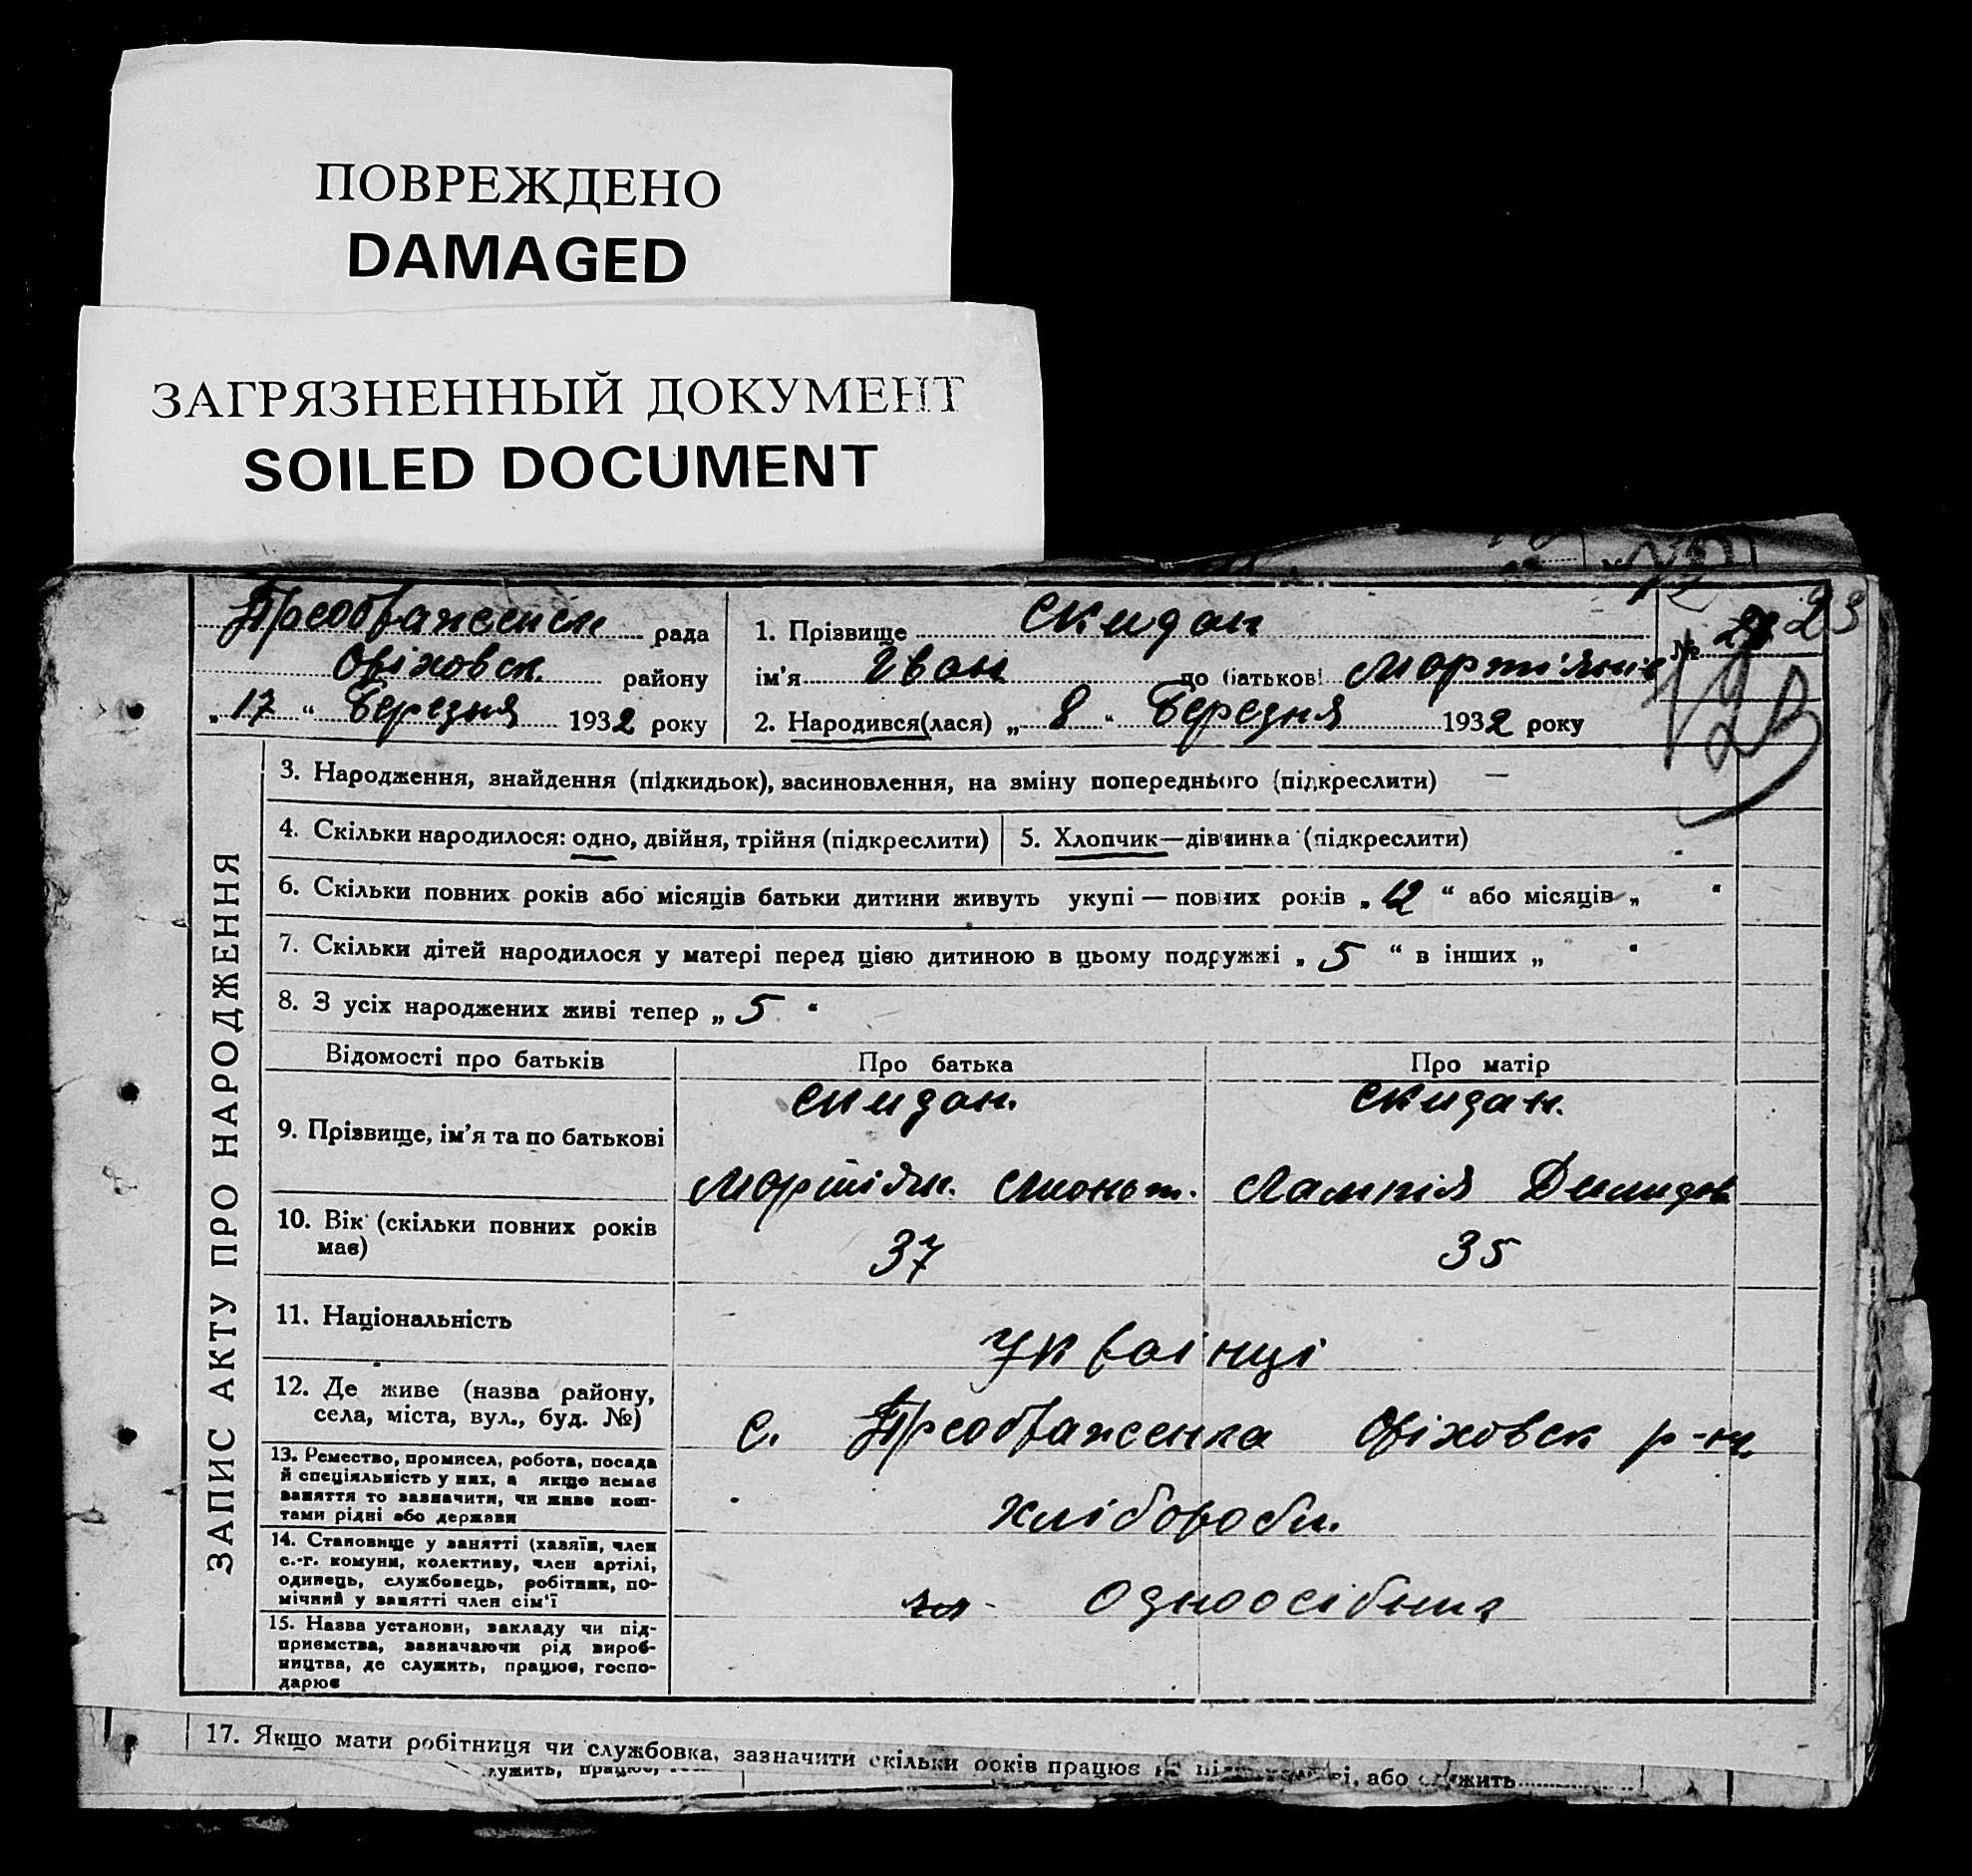 ПОВРЕЖДЕНО
DAMAGED
ЗАГРЯЗНЕННЫЙ ДОКУМЕНТ
SOILED DOCUMENT
Преображенськ рада
Оріховск. району
„17“ Березня 1932 року
1. Прізвище Скидан
ім'я Іван по батькові Мартіянов
2. Народився(лася) „8“ Березня 1932 року
№ 23
ЗАПИС АКТУ ПРО НАРОДЖЕННЯ
3. Народження, знайдення (підкидьок), васиновлення, на зміну попереднього (підкреслити) —
4. Скільки народилося: одно, двійня, трійня (підкреслити)
5. Хлопчик—дівчинка (підкреслити)
6. Скільки повних років або місяців батьки дитини живуть укупі — повних років „12“ або місяців „ “
7. Скільки дітей народилося у матері перед цією дитиною в цьому подружжі „5“ в інших „ “
8. З усіх народжених живі тепер „5“
Відомості про батьків Про батька Про матір
9. Прізвище, ім'я та по батькові
Скидан. Скидан.
Мартіян. Лампія Демидов
10. Вік (скільки повних років
має)
37 35
11. Національність
Українці
12. Де живе (назва району,
села, міста, вул., буд. №)
с. Преображенка Оріховск р-н.
13. Ремество, промисел, робота, посада
й спеціяльність у них, а якщо немає
заняття то зазначити, чи живе кош-
тами рідні або держави
хлібороби.
14. Становище у занятті (хазяїн, член
с.-г. комуни, колективу, член артілі,
одинець, службовець, робітник, по-
мічний у занятті член сім'ї
одноосібник
15. Назва установи, закладу чи під-
приємства, зазначаючи рід вироб-
ництва, де служить, працює, госпо-
дарює
17. Якщо мати робітниця чи службовка, зазначити скільки років працює або служить